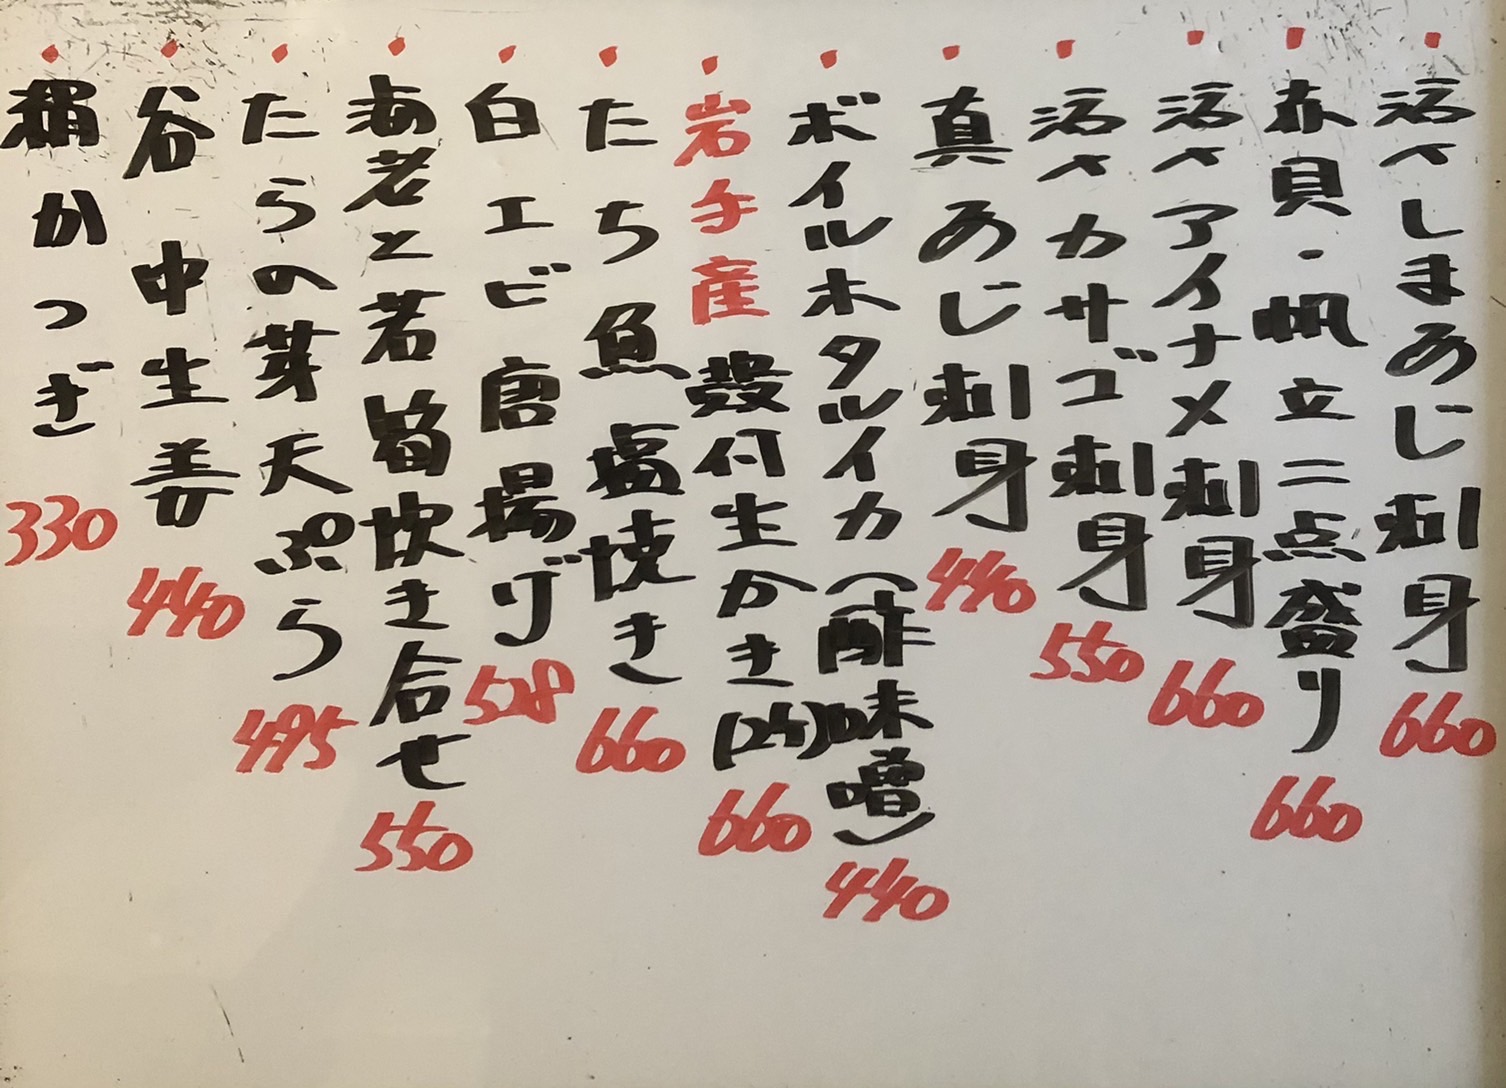 活〆しまあじ刺身 660
赤貝・帆立二点盛り 660
活〆アイナメ刺身 660
活〆カサゴ刺身 550
真あじ刺身 440
ボイルホタルイカ(酢味噌) 440
岩手産 殻付生かき(2ヶ) 660
たち魚 塩焼き 660
白エビ 唐揚げ 528
海老と若筍炊き合せ 550
たらの芽天ぷら 495
谷中生姜 440
絹かつぎ 330